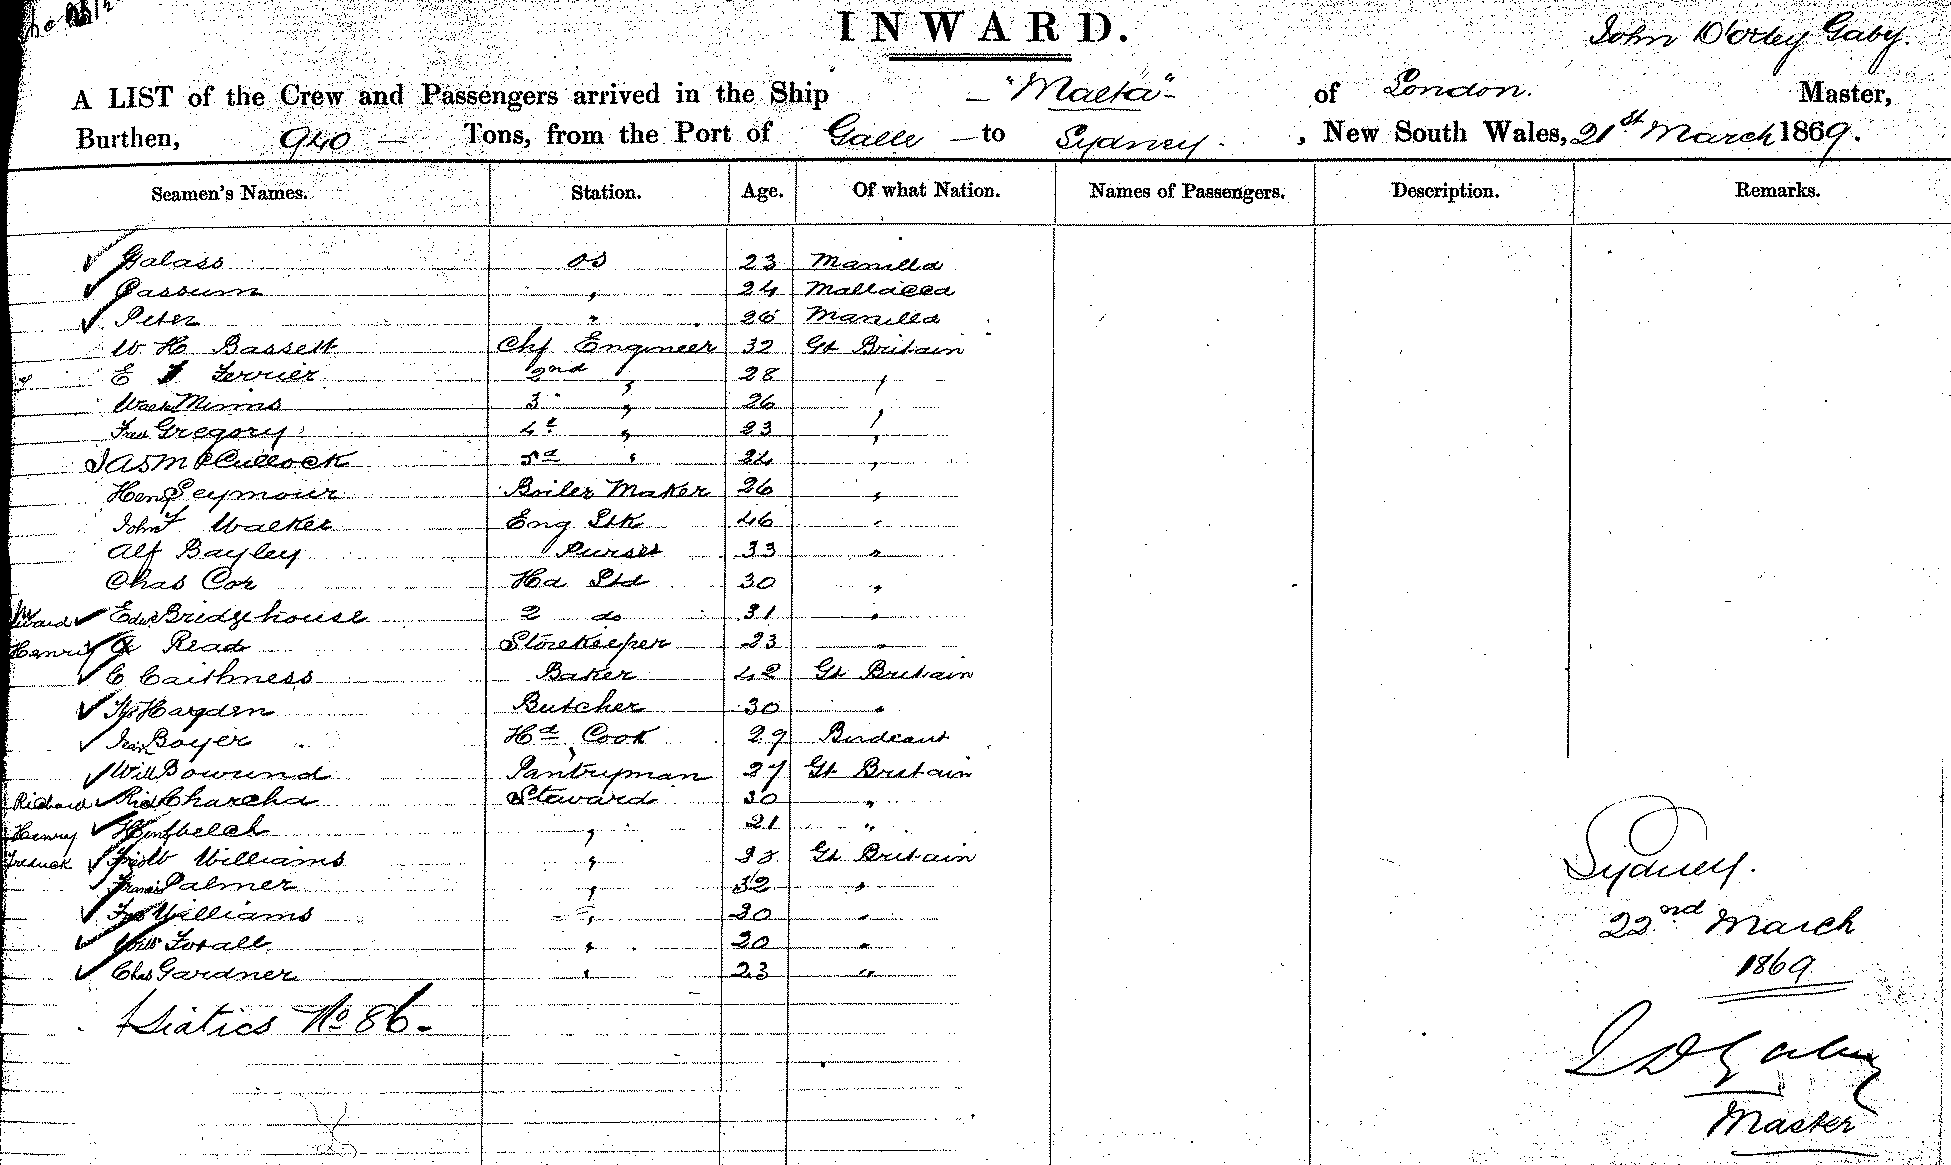 INWARD.
John D'Oyley Gaby.
A LIST of the Crew and Passengers arrived in the Ship "Malta" of London. Master,
Burthen, 940 Tons, from the Port of Galle to Sydney. , New South Wales, 21st March 1869.
Seamen's Names. Station. Age. Of what Nation. Names of Passengers. Description. Remarks.
Galass os 23 Manilla
Cassum " 24 Mallacca
Peter " 26 Manilla
W. H Bassett Chf Engineer 32 Gt Britain
E Ferrier 2nd " 28 "
Mimms 3 " 26 "
Gregory 4th " 23 "
Jas McCullock " 24 "
Heny Seymour Boiler Maker 26 "
John Walker Eng Stk 46 "
Alf Bayley Purser 33 "
Chas Cox Hd Std 30 "
Edwd Bridgehouse 2 do 31 "
Henri Read Storekeeper 23 "
C Caithness Baker 42 Gt Britain
Hayden Butcher 30 "
Boyer Hd Cook 29 Bordeaux
Will Bowund Pantryman 27 Gt Britain
Richard Richd Charcha Steward 30 "
Henry 21 "
Williams " Gt Britain
Francis Palmer " 32 "
Williams " 30 "
" 20 "
Chas Gardner " 23 "
Asiatics No 86.
Sydney.
22nd March
1869
J D Gaby
Master